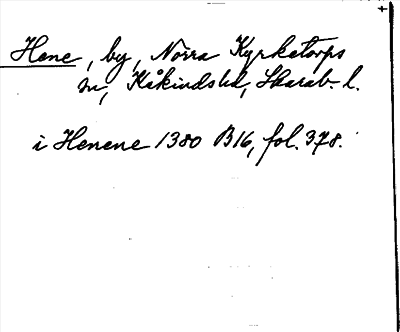 Hene, by, Norra Kyrketorps
sn, Kåkinds hd, Skarab. l.
i Henene 1380 B16, fol. 378.